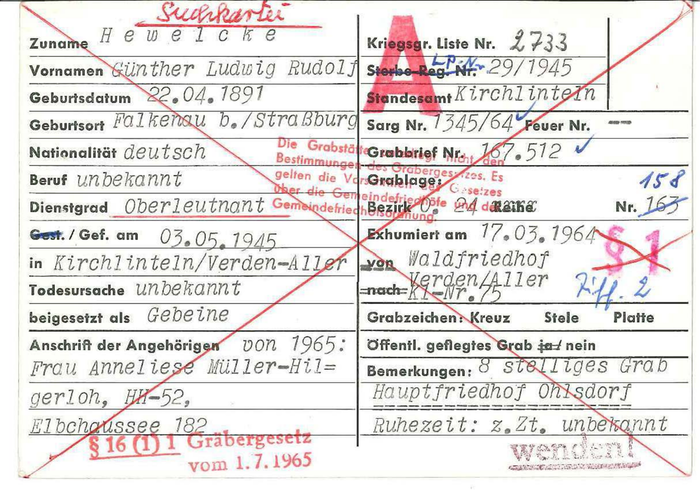 Suchkartei
Zuname Hewelcke
Vornamen Günther Ludwig Rudolf
Geburtsdatum 22.04.1891
Geburtsort Falkenau b./Straßburg
Nationalität deutsch
Beruf unbekannt
Dienstgrad Oberleutnant
Gest. / Gef. am 03.05.1945
in Kirchlinteln/Verden-Aller
Todesursache unbekannt
beigesetzt als Gebeine
Anschrift der Angehörigen von 1965:
Frau Anneliese Müller-Hil=
gerloh, HH-52,
Elbchaussee 182
§ 16 (1) 1 Gräbergesetz
vom 1.7.1965
A
Kriegsgr. Liste Nr. 2733
L.P.-Nr.
Sterbe-Reg. Nr. 29/1945
Standesamt Kirchlinteln
Sarg Nr. 1345/64 Feuer Nr. --
Grabbrief Nr. 167.512
Die Grabstätte unterliegt nicht den
Bestimmungen des Gräbergesetzes. Es
gelten die Vorschriften des Gesetzes
über die Gemeindefriedhöfe und der
Gemeindefriedhofsordnung.
Grablage: 158
Bezirk O. 24 Reihe Nr. 163
Exhumiert am 17.03.1964
§ 1
von Waldfriedhof
Verden/Aller
nach Kl-Nr.75
Ziff. 2
Grabzeichen: Kreuz Stele Platte
Öffentl. gepflegtes Grab ja/ nein
Bemerkungen: 8 stelliges Grab
Hauptfriedhof Ohlsdorf
Ruhezeit: z.Zt. unbekannt
wenden!